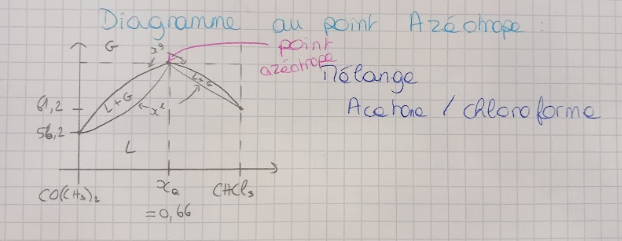 Diagramme au point Azéotrope :
G
x^g
point
azéotrope
Mélange
Acetone / chloroforme
L+G
L+G
x^l
61,2
56,2
L
CO(CH3)2
xa
CHCl3
=0,66